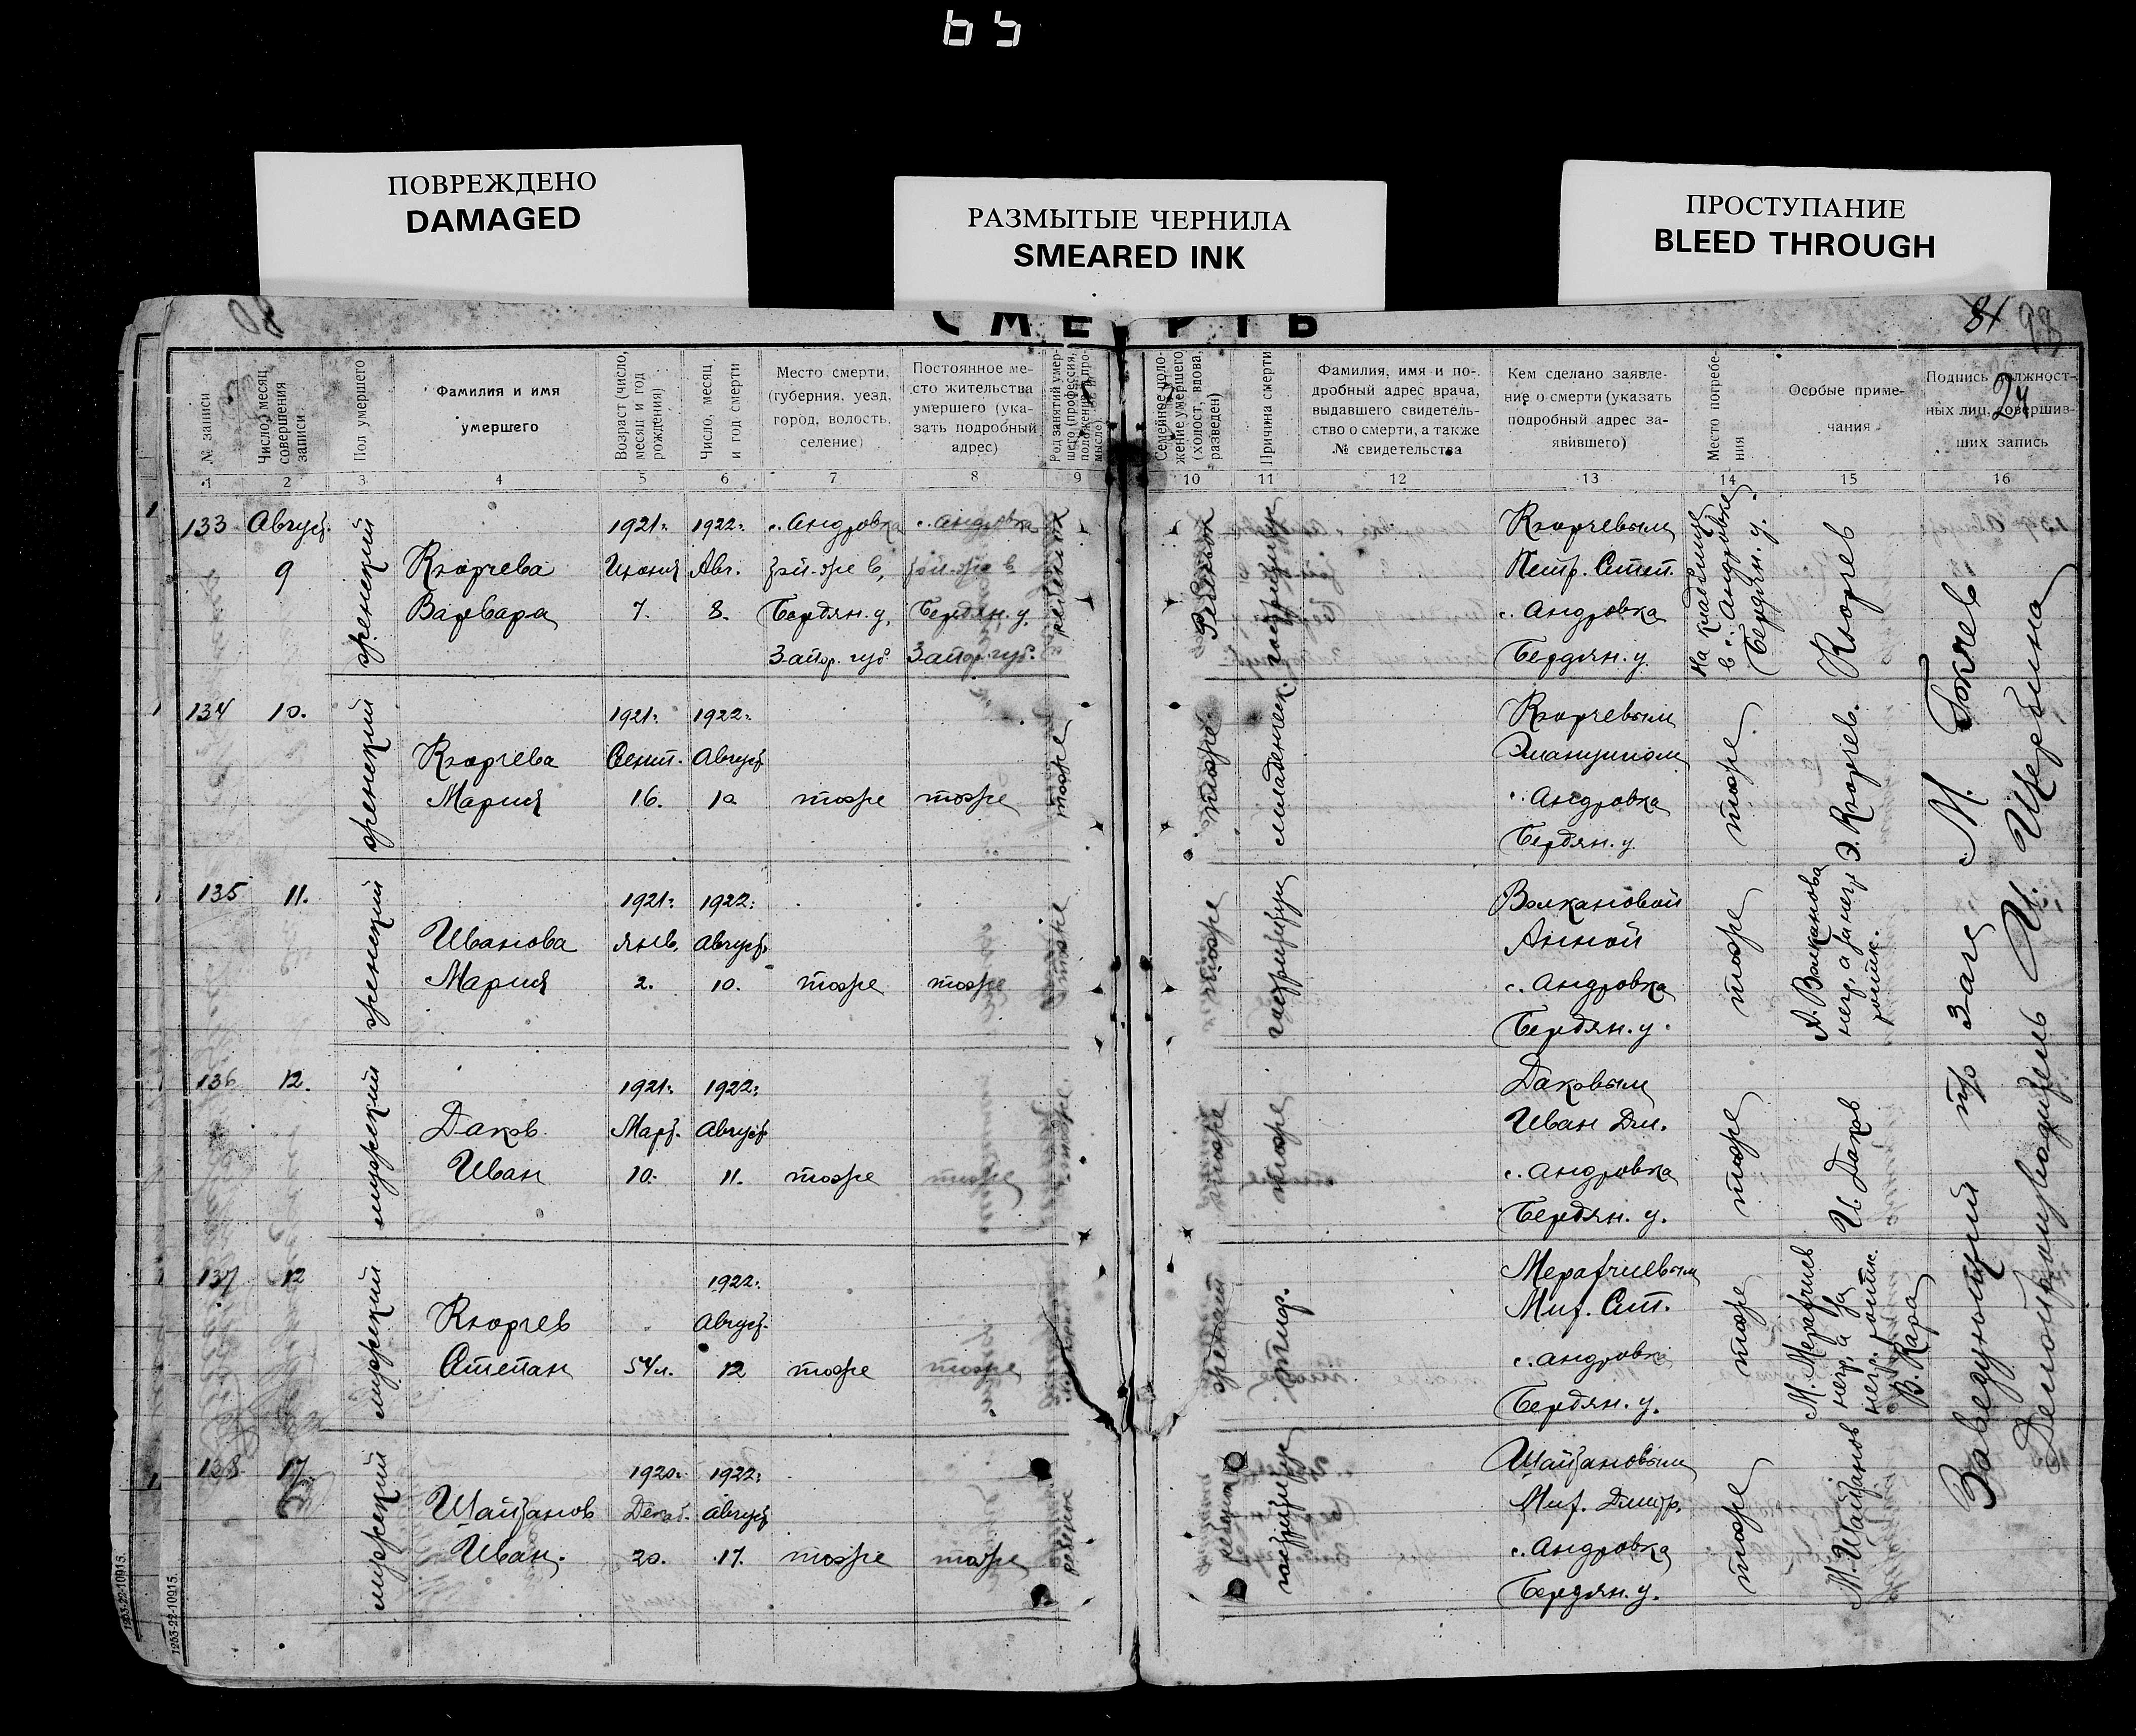 ПОВРЕЖДЕНО
DAMAGED
РАЗМЫТЫЕ ЧЕРНИЛА
SMEARED INK
ПРОСТУПАНИЕ
BLEED THROUGH
СМЕРТЬ
№ записи
Число, месяц
совершения
записи
Пол умершего
Фамилия и имя
умершего
Возраст (число,
месяц и год
рождения)
Число, месяц
и год смерти
Место смерти,
(губерния, уезд,
город, волость,
селение)
Постоянное ме-
сто жительства
умершего (ука-
зать подробный
адрес)
Род занятий умер-
шего (профессия,
Семейное поло-
жение умершего
(холост, вдова,
разведен)
Причина смерти
Фамилия, имя и по-
дробный адрес врача,
выдавшего свидетель-
ство о смерти, а также
№ свидетельства
Кем сделано заявле-
ние о смерти (указать
подробный адрес за-
явившего)
Место погребе-
ния
Особые приме-
чания
Подпись должност-
ных лиц, совершив-
ших запись
24
1 2 3 4 5 6 7 8 9 10 11 12 13 14 15 16
133
Август.
9
женский
Кюрчева
Варвара
1921г.
Июня
7.
1922г.
Авг.
8.
с. Андровка
Бердян. у.
Запор. губ.
с. Андровка
Бердян. у.
Запор. губ.
ребенок
Ребенок
Кюрчевым
Петр. Степ.
с. Андровка
Бердян. у.
На кладбище
в с. Андровке
Бердян. у.
Кюрчев
134
10.
женский
Кюрчева
Мария
1921г.
Сент.
16.
1922г.
Август
10
тоже
тоже
тоже
тоже
младенческ.
Кюрчевым
с. Андровка
Бердян. у.
тоже
Э. Кюрчев.
135
11.
женский
Иванова
Мария
1921г.
янв.
2.
1922г.
Август
10.
тоже
тоже
тоже
тоже
Волкановой
Анной
с. Андровка
Бердян. у.
тоже
А. Волканова
136
12.
мужский
Даков
Иван
1921г.
Март.
10.
1922г.
Август
11.
тоже
тоже
тоже
тоже
тоже
Даковым
Иван Дм.
с. Андровка
Бердян. у.
тоже
И. Даков
137
12
мужский
Кюрчев
Степан
54 л.
1922г.
Август.
12
тоже
тоже
женат
Мераджиевым
Мих. Ст.
с. Андровка
Бердян. у.
тоже
В. Кара
138
17
мужский
Шайтанов
Иван.
1920г.
Декаб.
20.
1922г.
Август
17.
тоже
тоже
ребенок
ребенок
Шайтановым
Мих. Дмитр.
с. Андровка
Бердян. у.
тоже
М. Шайтанов
Заведующий п/о Загс М.
Делопроизводитель И. Щербина
1253-22-10915.
1253-22-10915.